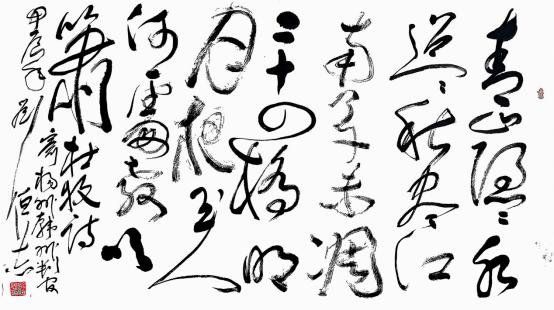 青山隐〻水
迢〻秋尽江
南草未凋
二十四橋明
月夜玉人
何處教吹
簫 杜牧诗
寄扬州韩绰判官
甲辰年